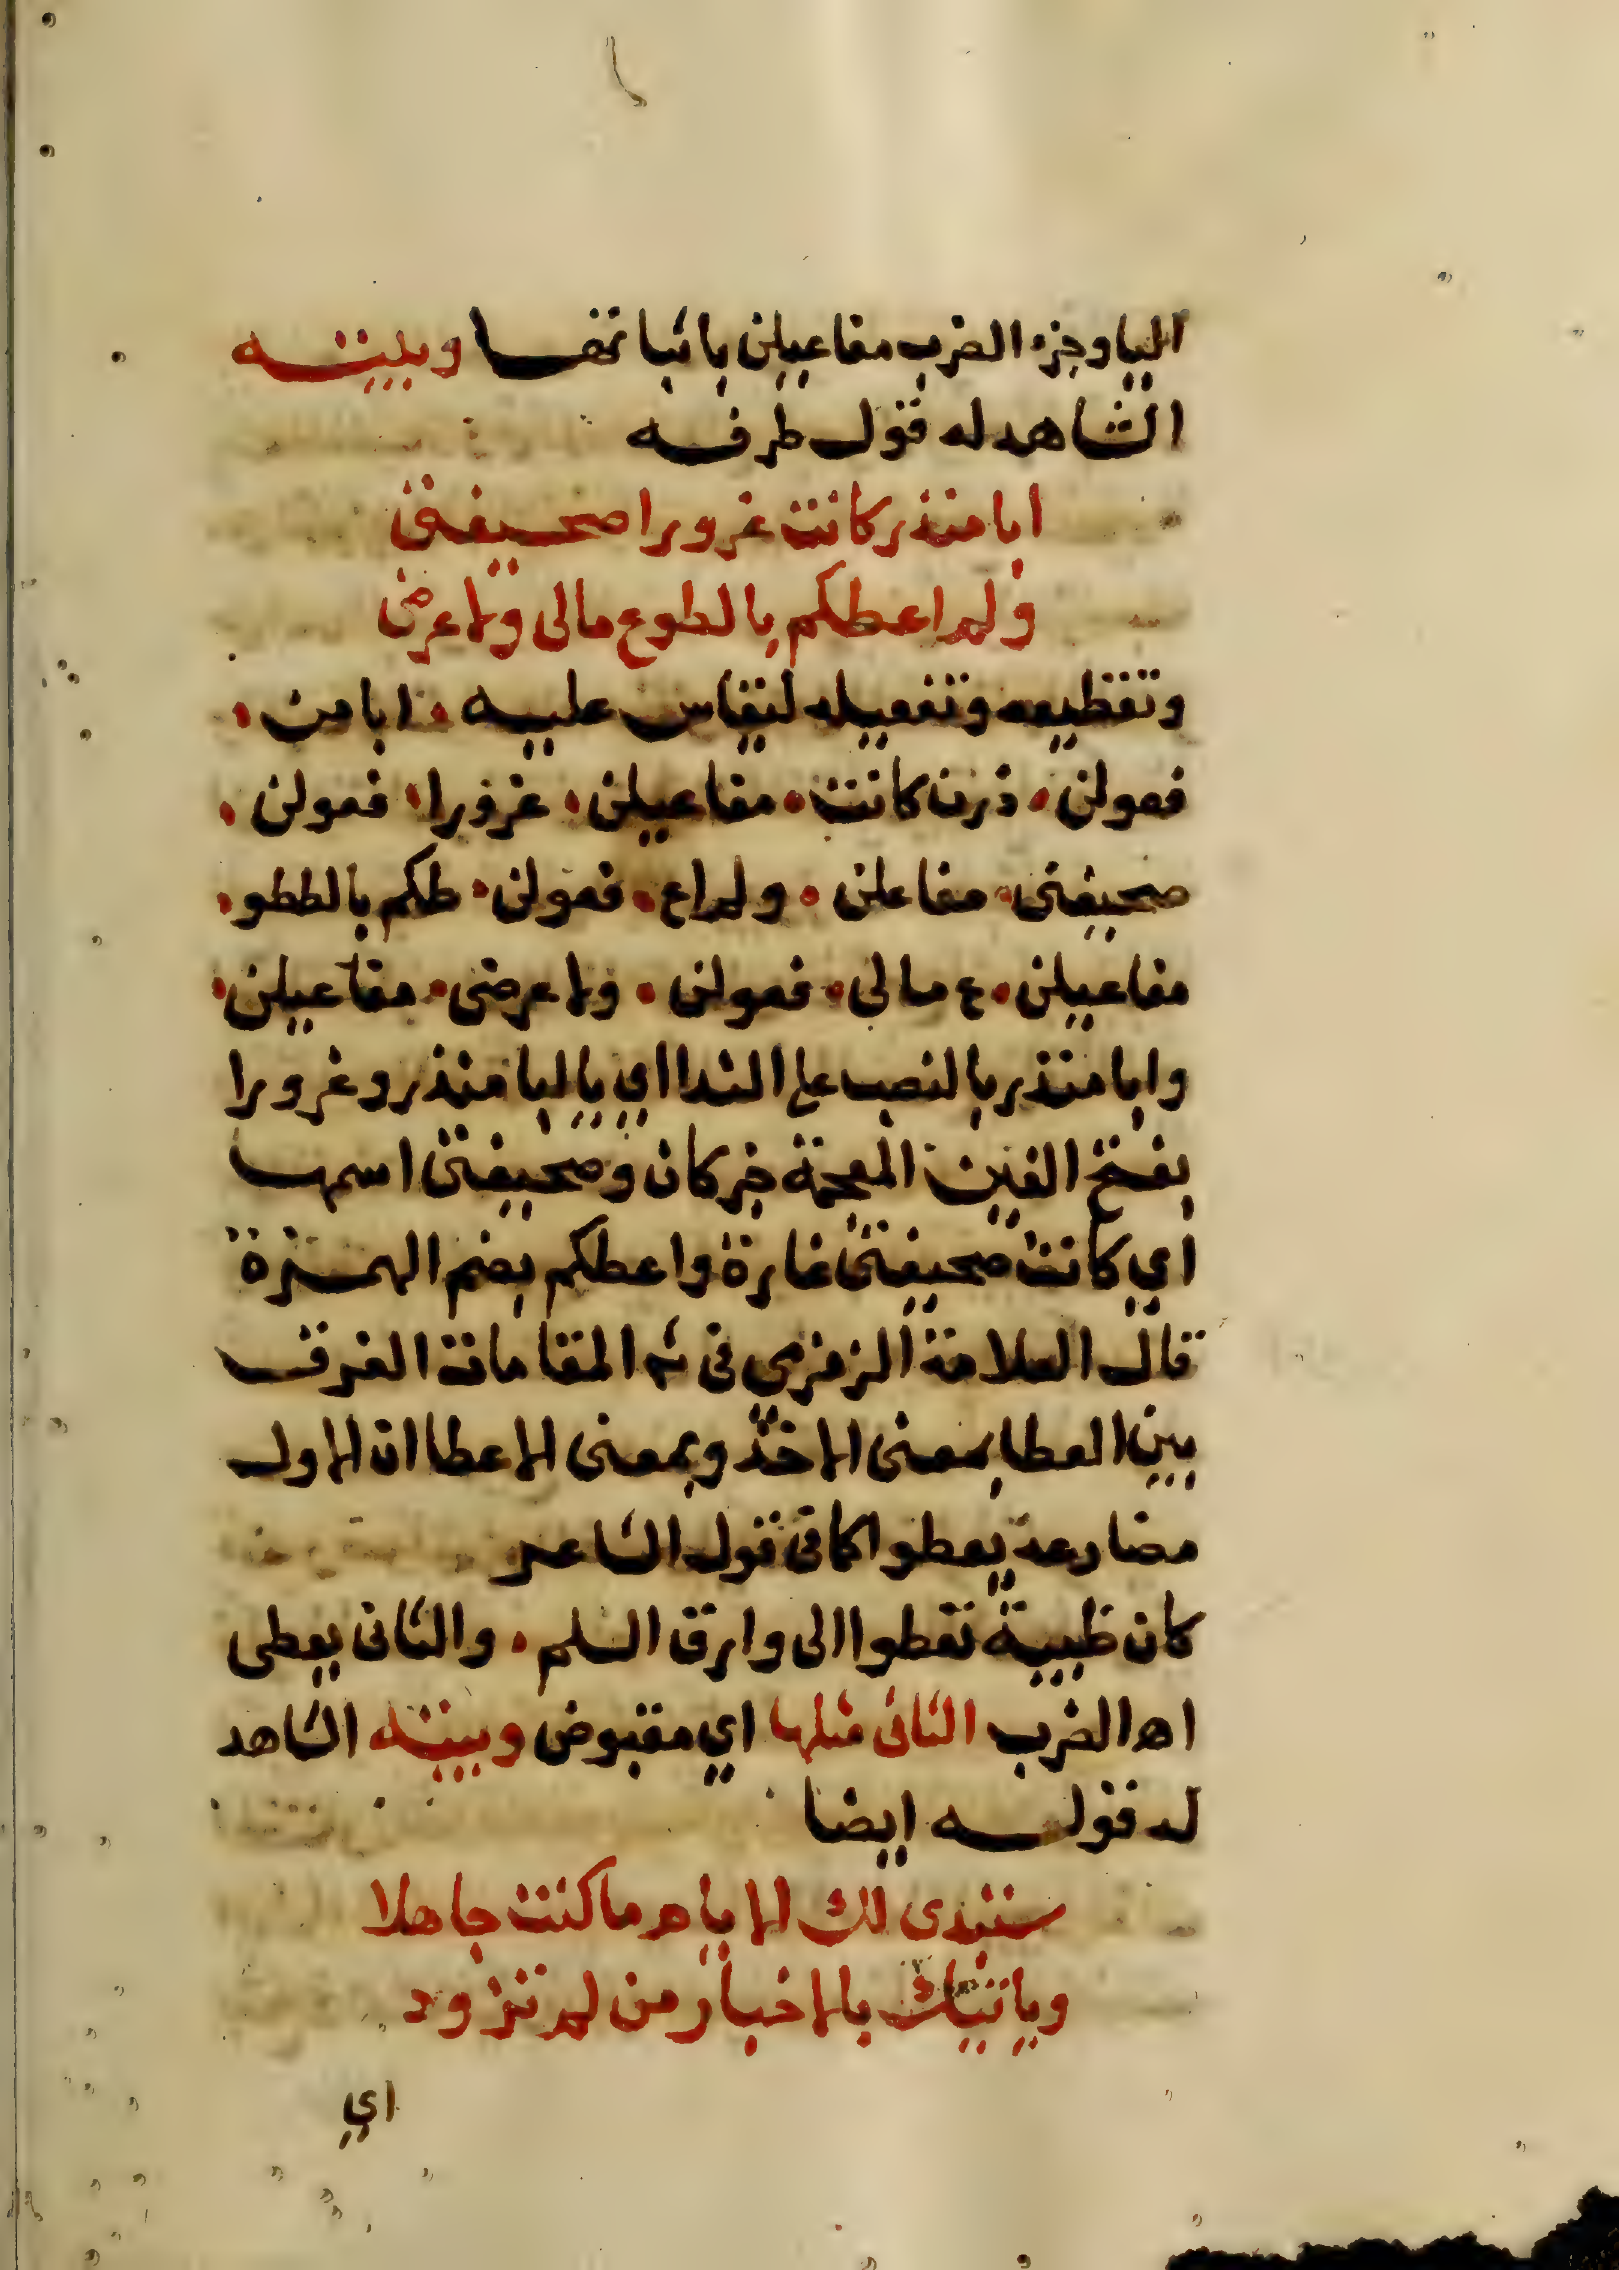 اليا وجزء الضرب مفاعيلن باثباتها وبيته
الشاهد له قول طرفه
ابا منذر كانت غرورا صحيفتى
ولم اعطكم بالطوع مالى ولا عرضى
وتقطيعه وتفعيله لتقاس عليه • ابامن •
فعولن • ذرن كانت • مفاعيلن • غرورا • فعولن •
صحيفتى • مفاعلن • ولم اع • فعولن • طكم بالططو •
مفاعيلن • ع مالى • فعولن • ولا عرضى • مفاعيلن •
وابا منذر بالنصب على الندا اي يا ابا منذر وغرورا
بفتح الغين المعجمة خبر كان وصحيفتى اسمها
اي كانت صحيفتى غارة واعطكم بضم الهمزة
قال العلامة الزمزمي فى شرح المقامات الفرق
بين العطا بمعنى الاخذ وبمعنى الاعطا ان الاول
مضارعه يعطوا كما فى قول الشاعر
كان ظبية تعطوا الى وارق السلم • والثانى يعطى
اه الضرب الثانى مثلها اي مقبوض وبيته الشاهد
له قوله ايضا
ستبدى لك الايام ما كنت جاهلا
وياتيك بالاخبار من لم تزود
اي